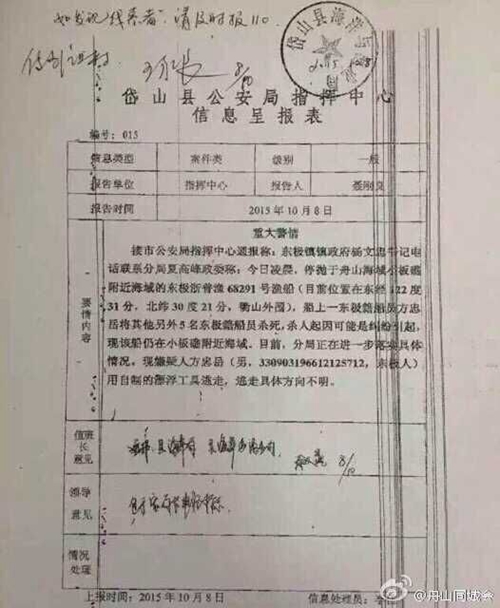 如发现线索者，请及时报110
8/10
岱山县海洋与渔业局
岱山县公安局指挥中心
信息呈报表
编号：015
信息类型 案件类 级别 一般
报告单位 指挥中心 报告人
报告时间 2015年10月8日
要情内容
重大警情
接市公安局指挥中心通报称：东极镇镇政府杨文忠书记电
话联系分局夏高峰政委称：今日凌晨，停抛于舟山海域小板礁
附近海域的东极浙普渔68291号渔船（目前位置在东经122度
31分，北纬30度21分，衢山外围），船上一东极籍船员方忠
岳将其他另外5名东极籍船员杀死，杀人起因可能是纠纷引起，
现该船仍在小板礁附近海域。目前，分局正在进一步落实具体
情况，现嫌疑人方忠岳（男，330903196612125712，东极人）
用自制的漂浮工具逃走，逃走具体方向不明。
值班长意见
8/10
领导意见
情况处理
上报时间：2015年10月8日 信息处理员：
@舟山同城会